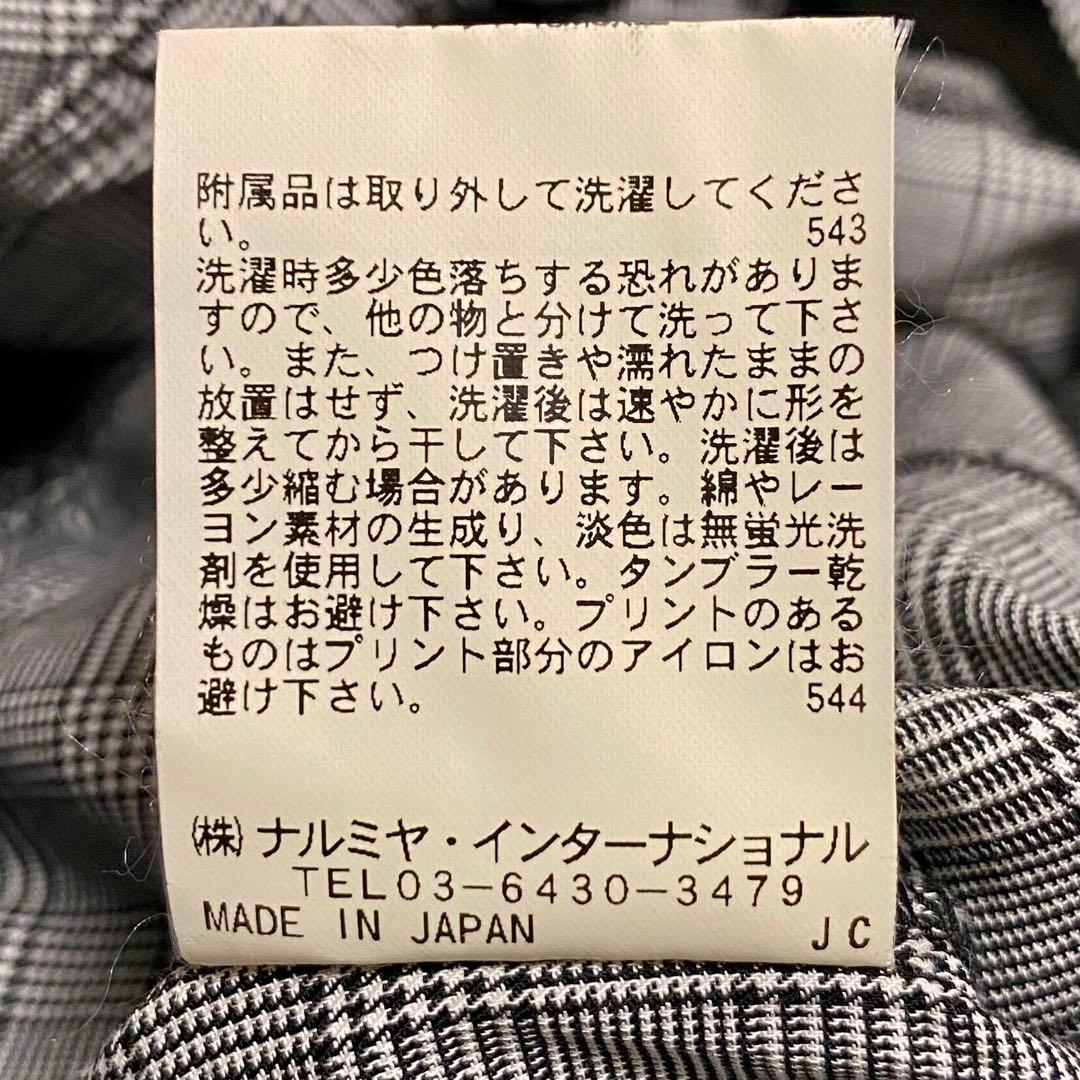 附属品は取り外して洗濯してくださ
い。 543
洗濯時多少色落ちする恐れがありま
すので、他の物と分けて洗って下さ
い。また、つけ置きや濡れたままの
放置はせず、洗濯後は速やかに形を
整えてから干して下さい。洗濯後は
多少縮む場合があります。綿やレー
ヨン素材の生成り、淡色は無蛍光洗
剤を使用して下さい。タンブラー乾
燥はお避け下さい。プリントのある
ものはプリント部分のアイロンはお
避け下さい。 544
(株)ナルミヤ・インターナショナル
TEL03-6430-3479
MADE IN JAPAN JC